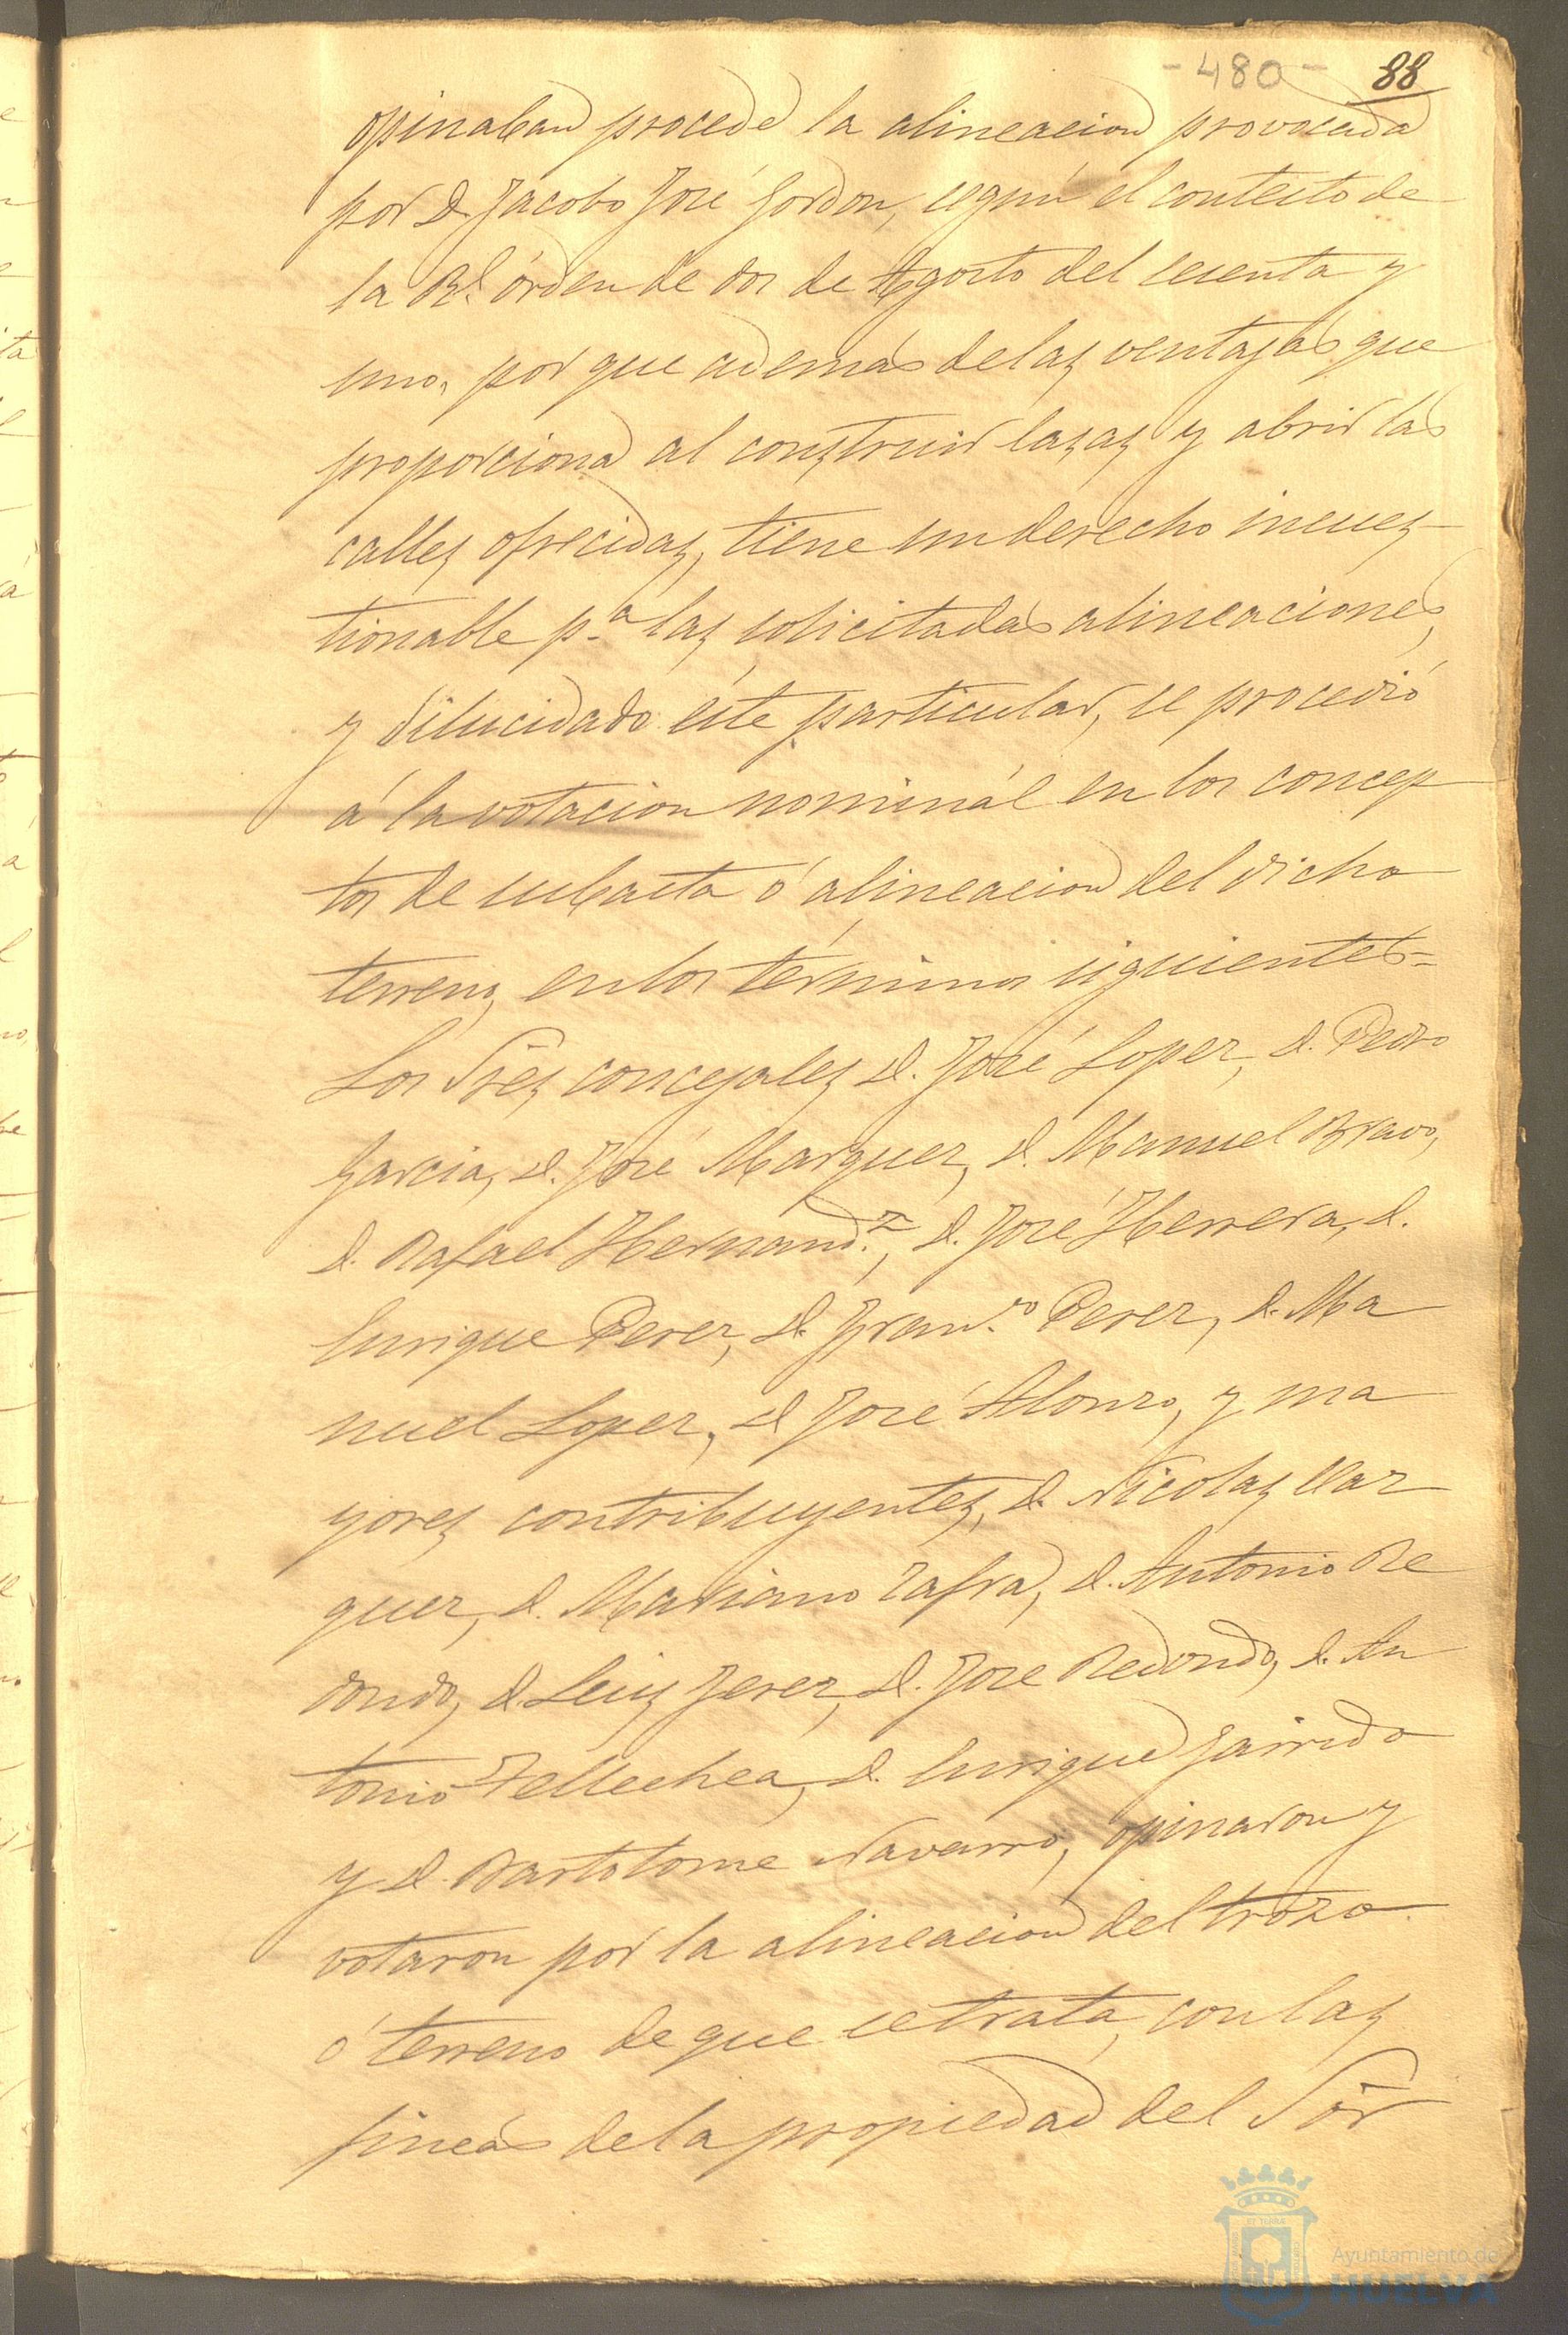 - 480 -
88
opinaban procede la alineacion provocada
por D. Jacobo José Gordon, segun el contesto de
la Rl. órden de dos de Agosto del sesenta y
uno, por que además de las ventajas que
proporciona al construir casas y abrir las
calles ofrecidas, tiene un derecho incues
tionable pa. las solicitadas alineaciones,
y dilucidado este particular, se procedió
á la votacion nominál en los concep
tos de subasta ó alineacion del dicho
terreno, en los términos siguientes=
Los Sres. concejales D. José Lopez, D. Pedro
Garcia, D. José Marquez, D. Manuel Bravo,
D. Rafael Hernand.z, D. José Herrera, D.
Enrique Perez, D. Fran.co Perez, D. Ma
nuel Lopez, D. José Alonzo, y ma
yores contribuyentes, D. Nicolas Vaz
quez, D. Mariano Zafra, D. Antonio Re
dondo, D. Luis Jerez, D. Jose Redondo, D. An
tonio Tellechea, D. Enrique Garrido
y D. Bartolome Navarro, opinaron y
votaron por la alineacion del trozo
ó terreno de que se trata, con las
fincas de la propiedad del Sor
Ayuntamiento de
HUELVA